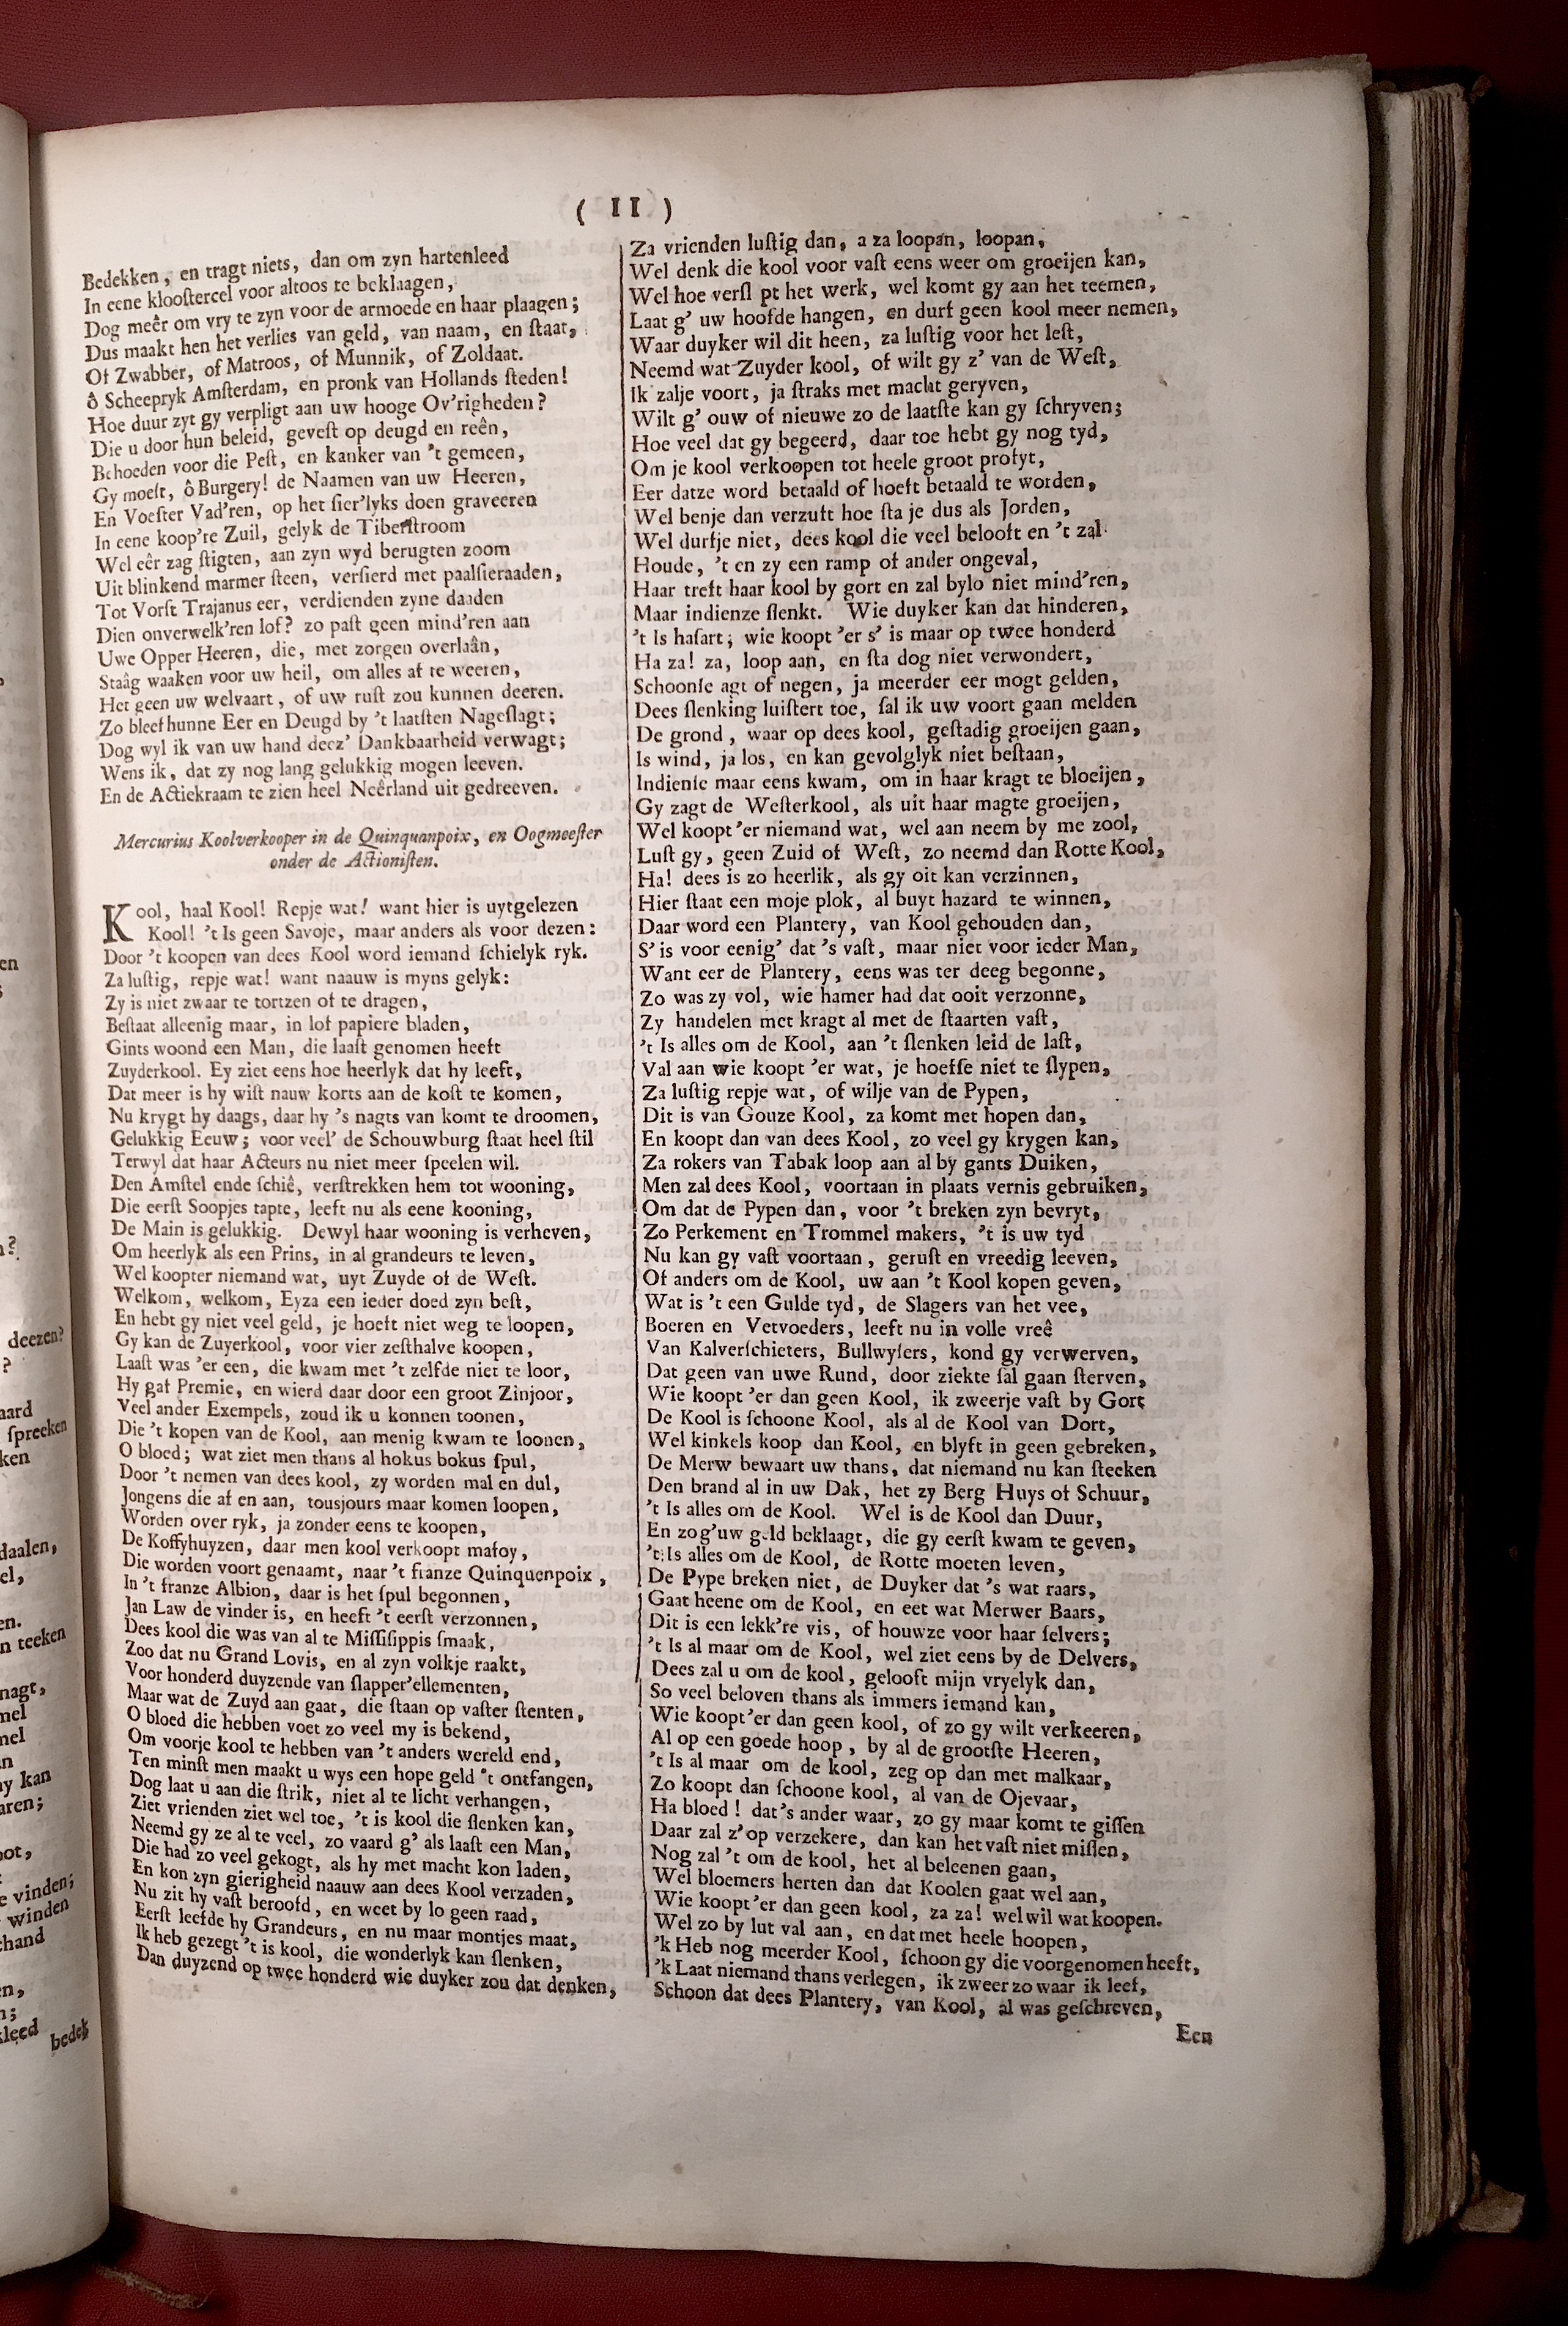 ( 11 )
Bedekken, en tragt niets, dan om zyn hartenleed
In eene klooſtercel voor altoos te beklaagen,
Dog meêr om vry te zyn voor de armoede en haar plaagen;
Dus maakt hen het verlies van geld, van naam, en ſtaat,
Of Zwabber, of Matroos, of Munnik, of Zoldaat.
ô Scheepryk Amſterdam, en pronk van Hollands ſteden!
Hoe duur zyt gy verpligt aan uw hooge Ov'righeden?
Die u door hun beleid, geveſt op deugd en reên,
Behoeden voor die Peſt, en kanker van 't gemeen,
Gy moeſt, ô Burgery! de Naamen van uw Heeren,
En Voeſter Vad'ren, op het ſier'lyks doen graveeren
In eene koop're Zuil, gelyk de Tiberſtroom
Wel eêr zag ſtigten, aan zyn wyd berugten zoom
Uit blinkend marmer ſteen, verſierd met paalſieraaden,
Tot Vorſt Trajanus eer, verdienden zyne daaden
Dien onverwelk'ren lof? zo paſt geen mind'ren aan
Uwe Opper Heeren, die, met zorgen overlaân,
Staâg waaken voor uw heil, om alles af te weeren,
Het geen uw welvaart, of uw ruſt zou kunnen deeren.
Zo bleef hunne Eer en Deugd by 't laatſten Nageſlagt;
Dog wyl ik van uw hand deez' Dankbaarheid verwagt;
Wens ik, dat zy nog lang gelukkig mogen leeven.
En de Actiekraam te zien heel Neêrland uit gedreeven.
Mercurius Koolverkooper in de Quinquanpoix, en Oogmeeſter
onder de Actioniſten.
Kool, haal Kool! Repje wat! want hier is uytgelezen
Kool! 't Is geen Savoje, maar anders als voor dezen:
Door 't koopen van dees Kool word iemand ſchielyk ryk.
Za luſtig, repje wat! want naauw is myns gelyk:
Zy is niet zwaar te tortzen of te dragen,
Beſtaat alleenig maar, in lof papiere bladen,
Gints woond een Man, die laaſt genomen heeft
Zuyderkool. Ey ziet eens hoe heerlyk dat hy leeft,
Dat meer is hy wiſt nauw korts aan de koſt te komen,
Nu krygt hy daags, daar hy 's nagts van komt te droomen,
Gelukkig Eeuw; voor veel' de Schouwburg ſtaat heel ſtil
Terwyl dat haar Acteurs nu niet meer ſpeelen wil.
Den Amſtel ende ſchiê, verſtrekken hem tot wooning,
Die eerſt Soopjes tapte, leeft nu als eene kooning,
De Main is gelukkig. Dewyl haar wooning is verheven,
Om heerlyk als een Prins, in al grandeurs te leven,
Wel koopter niemand wat, uyt Zuyde of de Weſt.
Welkom, welkom, Eyza een ieder doed zyn beſt,
En hebt gy niet veel geld, je hoeft niet weg te loopen,
Gy kan de Zuyerkool, voor vier zeſthalve koopen,
Laaſt was 'er een, die kwam met 't zelfde niet te loor,
Hy gaf Premie, en wierd daar door een groot Zinjoor,
Veel ander Exempels, zoud ik u konnen toonen,
Die 't kopen van de Kool, aan menig kwam te loonen,
O bloed; wat ziet men thans al hokus bokus ſpul,
Door 't nemen van dees kool, zy worden mal en dul,
Jongens die af en aan, tousjours maar komen loopen,
Worden over ryk, ja zonder eens te koopen,
De Koffyhuyzen, daar men kool verkoopt mafoy,
Die worden voort genaamt, naar 't franze Quinquenpoix,
In 't franze Albion, daar is het ſpul begonnen,
Jan Law de vinder is, en heeft 't eerſt verzonnen,
Dees kool die was van al te Miſſiſippis ſmaak,
Zoo dat nu Grand Lovis, en al zyn volkje raakt,
Voor honderd duyzende van ſlapper'ellementen,
Maar wat de Zuyd aan gaat, die ſtaan op vaſter ſtenten,
O bloed die hebben voet zo veel my is bekend,
Om voorje kool te hebben van 't anders wereld end,
Ten minſt men maakt u wys een hope geld 't ontfangen,
Dog laat u aan die ſtrik, niet al te licht verhangen,
Ziet vrienden ziet wel toe, 't is kool die ſlenken kan,
Neemd gy ze al te veel, zo vaard g' als laaſt een Man,
Die had zo veel gekogt, als hy met macht kon laden,
En kon zyn gierigheid naauw aan dees Kool verzaden,
Nu zit hy vaſt beroofd, en weet by lo geen raad,
Eerſt leefde hy Grandeurs, en nu maar montjes maat,
Ik heb gezegt 't is kool, die wonderlyk kan ſlenken,
Dan duyzend op twee honderd wie duyker zou dat denken,
Za vrienden luſtig dan, a za loopan, loopan,
Wel denk die kool voor vaſt eens weer om groeijen kan,
Wel hoe verſl pt het werk, wel komt gy aan het teemen,
Laat g' uw hoofde hangen, en durf geen kool meer nemen,
Waar duyker wil dit heen, za luſtig voor het leſt,
Neemd wat Zuyder kool, of wilt gy z' van de Weſt,
Ik zalje voort, ja ſtraks met macht geryven,
Wilt g' ouw of nieuwe zo de laatſte kan gy ſchryven;
Hoe veel dat gy begeerd, daar toe hebt gy nog tyd,
Om je kool verkoopen tot heele groot profyt,
Eer datze word betaald of hoeft betaald te worden,
Wel benje dan verzuft hoe ſta je dus als Jorden,
Wel durfje niet, dees kool die veel belooft en 't zal
Houde, 't en zy een ramp of ander ongeval,
Haar treft haar kool by gort en zal bylo niet mind'ren,
Maar indienze ſlenkt. Wie duyker kan dat hinderen,
't Is haſart; wie koopt 'er s' is maar op twee honderd
Ha za! za, loop aan, en ſta dog niet verwondert,
Schoonſe agt of negen, ja meerder eer mogt gelden,
Dees ſlenking luiſtert toe, ſal ik uw voort gaan melden
De grond, waar op dees kool, geſtadig groeijen gaan,
Is wind, ja los, en kan gevolglyk niet beſtaan,
Indienſe maar eens kwam, om in haar kragt te bloeijen,
Gy zagt de Weſterkool, als uit haar magte groeijen,
Wel koopt 'er niemand wat, wel aan neem by me zool,
Luſt gy, geen Zuid of Weſt, zo neemd dan Rotte Kool,
Ha! dees is zo heerlik, als gy oit kan verzinnen,
Hier ſtaat een moje plok, al buyt hazard te winnen,
Daar word een Plantery, van Kool gehouden dan,
S' is voor eenig' dat 's vaſt, maar niet voor ieder Man,
Want eer de Plantery, eens was ter deeg begonne,
Zo was zy vol, wie hamer had dat ooit verzonne,
Zy handelen met kragt al met de ſtaarten vaſt,
't Is alles om de Kool, aan 't ſlenken leid de laſt,
Val aan wie koopt 'er wat, je hoeffe niet te ſlypen,
Za luſtig repje wat, of wilje van de Pypen,
Dit is van Gouze Kool, za komt met hopen dan,
En koopt dan van dees Kool, zo veel gy krygen kan,
Za rokers van Tabak loop aan al by gants Duiken,
Men zal dees Kool, voortaan in plaats vernis gebruiken,
Om dat de Pypen dan, voor 't breken zyn bevryt,
Zo Perkement en Trommel makers, 't is uw tyd
Nu kan gy vaſt voortaan, geruſt en vreedig leeven,
Of anders om de Kool, uw aan 't Kool kopen geven,
Wat is 't een Gulde tyd, de Slagers van het vee,
Boeren en Vetvoeders, leeft nu in volle vreê
Van Kalverſchieters, Bullwyſers, kond gy verwerven,
Dat geen van uwe Rund, door ziekte ſal gaan ſterven,
Wie koopt 'er dan geen Kool, ik zweerje vaſt by Gort
De Kool is ſchoone Kool, als al de Kool van Dort,
Wel kinkels koop dan Kool, en blyft in geen gebreken,
De Merw bewaart uw thans, dat niemand nu kan ſteeken
Den brand al in uw Dak, het zy Berg Huys of Schuur,
't Is alles om de Kool. Wel is de Kool dan Duur,
En zo g'uw geld beklaagt, die gy eerſt kwam te geven,
't Is alles om de Kool, de Rotte moeten leven,
De Pype breken niet, de Duyker dat 's wat raars,
Gaat heene om de Kool, en eet wat Merwer Baars,
Dit is een lekk're vis, of houwze voor haar ſelvers;
't Is al maar om de Kool, wel ziet eens by de Delvers,
Dees zal u om de kool, gelooft mijn vryelyk dan,
So veel beloven thans als immers iemand kan,
Wie koopt'er dan geen kool, of zo gy wilt verkeeren,
Al op een goede hoop, by al de grootſte Heeren,
't Is al maar om de kool, zeg op dan met malkaar,
Zo koopt dan ſchoone kool, al van de Ojevaar,
Ha bloed! dat's ander waar, zo gy maar komt te giſſen
Daar zal z' op verzekere, dan kan het vaſt niet miſſen,
Nog zal 't om de kool, het al beleenen gaan,
Wel bloemers herten dan dat Koolen gaat wel aan,
Wie koopt'er dan geen kool, za za! wel wil wat koopen.
Wel zo by lut val aan, en dat met heele hoopen,
'k Heb nog meerder Kool, ſchoon gy die voorgenomen heeft,
'k Laat niemand thans verlegen, ik zweer zo waar ik leef,
Schoon dat dees Plantery, van Kool, al was geſchreven,
Een
en
deezen?
?
aard
ſpreeken
ken
daalen,
el,
en.
n teeken
nagt,
mel
mel
an
ny kan
aren;
oot,
e vinden;
winden
hand
en,
n;
kleed
bedek